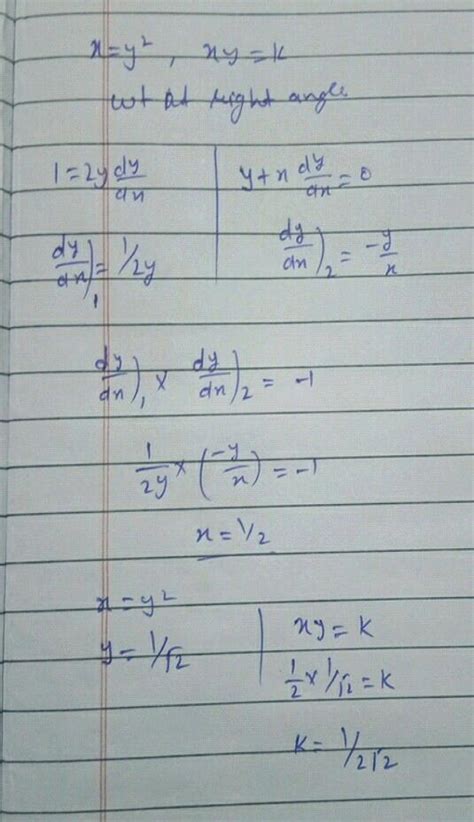 x=y² , xy=k
cut at right angle
1=2y dy/dx
dy/dx)₁ = 1/2y
y+x dy/dx=0
dy/dx)₂ = -y/x
dy/dx)₁ × dy/dx)₂ = -1
1/2y × (-y/x) = -1
x=1/2
x=y²
y=1/√2
xy=k
1/2 × 1/√2 = k
k=1/2√2